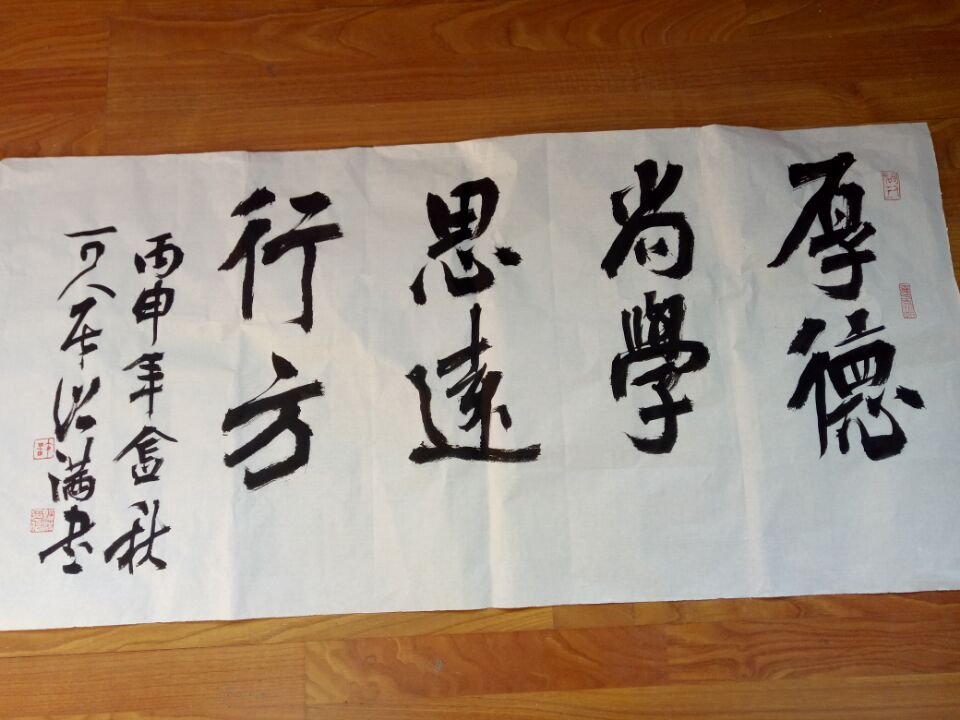 厚德
尚學
思遠
行方
丙申年金秋
可人居浩满书